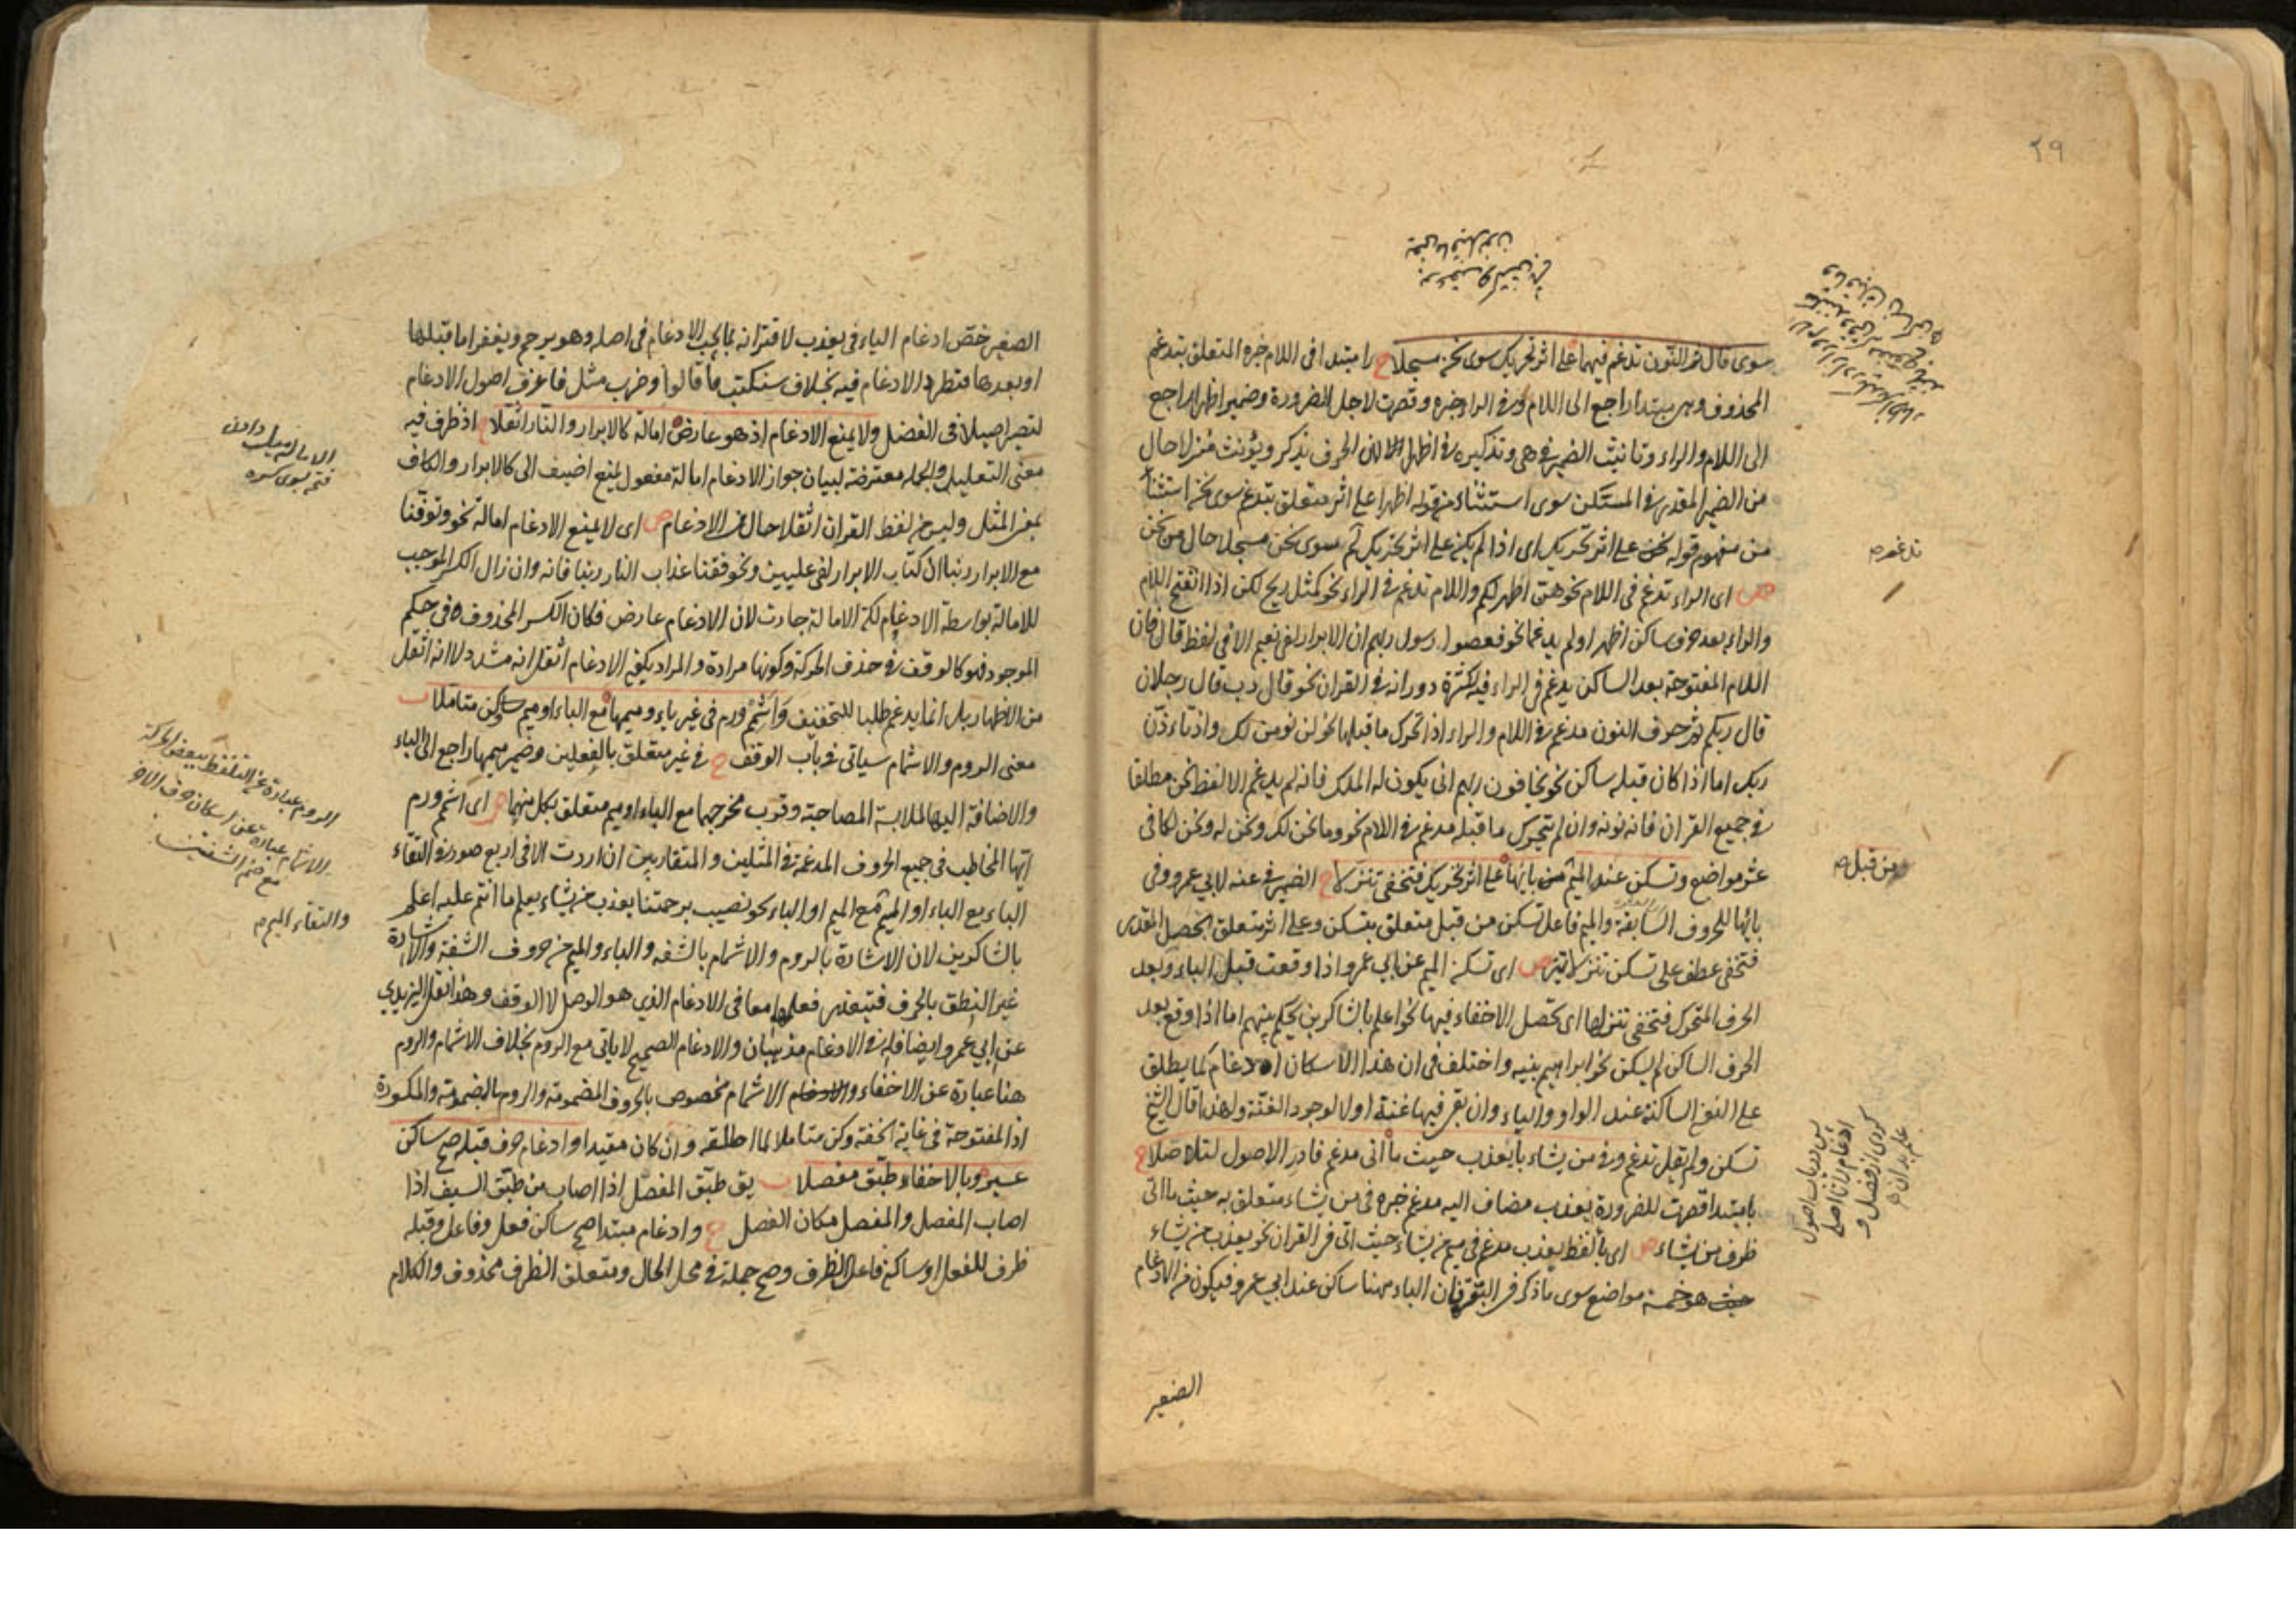 ٢٩
سوى قال ثم النون تدغم فيهما على اثر تحريك سوى نحن مسجلا ح را مبتدا في اللام خبره المتعلق بتدغم
المحذوف وهي مبتدا راجع الى اللام وفي الرا خبره وقصرت لاجل الضرورة وضمير اظهرا راجع
الى اللام والراء وتانيث الضمير في هي وتذكيره في اظهرا لان الحرف يذكر ويؤنث منزلا حال
من الضمير المقدر في المسكن سوى استثناء من قوله اظهرا على اثر متعلق بتدغم سوى نحن استثناء
من مفهوم قوله على اثر تحريك اى اذا لم يكن على اثر تحريك لم سوى نحن مسجلا حال من نحن
ص اى الراء تدغم في اللام نحو هن اطهر لكم واللام تدغم في الراء نحو كمثل ريح لكن اذا انفتح اللام
والراء بعد حرف ساكن اظهرا ولم يدغما نحو فعصوا رسول ربهم ان الابرار لفي نعيم الا في لفظ قال فان
اللام المفتوحة بعد الساكن يدغم في الراء فيه لكثرة دورانه في القران نحو قال رب قال رجلان
قال ربكم ثم حرف النون مدغم في اللام والراء اذا تحرك ما قبلها نحو لن نومن لك واذ تاذن
ربك اما اذا كان قبله ساكن نحو يخافون ربهم انى يكون له الملك فانه لم يدغم الا لفظ نحن مطلقا
في جميع القران فانه نونه وان لم يتحرك ما قبله مدغم في اللام نحو وما نحن لك ونحن له ونحن لكما في
عشر مواضع وتسكن عنه الميم من بائها على اثر تحريك فتخفى تنزلا ح الضمير في عنه لابي عمرو وفي
بائها للحروف السابقة والميم فاعل تسكن من قبل متعلق بتسكن وعلى اثر متعلق بحصل المقدر
فتخفى عطف على تسكن تنزلا تميز ص اى تسكن الميم عن ابي عمرو اذا وقعت قبل الباء وبعد
الحرف المتحرك فتخفى تنزلها اى يحصل الاخفاء فيها نحو اعلم بالشاكرين يحكم بينهم اما اذا وقع بعد
الحرف الساكن لم يسكن نحو ابراهيم بنيه واختلف في ان هذا الاسكان ادغام كما يطلق
على النون الساكنة عند الواو والياء وان بقي فيها غنة اولا لوجود الغنة ولهذا قال الشيخ
تسكن ولم يقل تدغم وفي من يشاء با يعذب حيث ما اتى مدغم فادر الاصول لتاصلا ح
با مبتدا قصرت للضرورة يعذب مضاف اليه مدغم خبره في من يشاء متعلق به حيث ما اتى
ظرف من يشاء ص اى با لفظ يعذب مدغم في ميم من يشاء حيث اتى في القران نحو يعذب من يشاء
خمسة مواضع سوى ما ذكر في البقرة فان الباء هنا ساكن عند ابي عمرو فيكون من الادغام
الصغير
تدغم م
من قبل م
پس درياب اصول
ادغام را تا اصلى
كردى از فضل و
علم بدان م
الصغير خص ادغام الباء في يعذب لاقترانه بما يجب الادغام في اصله وهو يرحم ويغفر اما قبلها
او بعدها فتطرد الادغام فيه بخلاف سنكتب ما قالوا وضرب مثل فاعرف اصول الادغام
لتصير اصيلا في الفضل ولا يمنع الادغام اذ هو عارض امالة كالابرار والنار اثقلا ح اذ ظرف فيه
معنى التعليل والجملة معترضة لبيان جواز الادغام امالة مفعول يمنع اضيف الى كالابرار والكاف
بمعنى المثل وليس من لفظ القران اثقلا حال من الادغام ص اى لا يمنع الادغام امالة نحو وتوفنا
مع الابرار ربنا ان كتاب الابرار لفي عليين ونحو فقنا عذاب النار ربنا فانه وان زال الكسر الموجب
للامالة بواسطة الادغام لكن الامالة جازت لان الادغام عارض فكان الكسر المحذوف في حكم
الموجود فهو كالوقف في حذف الحركة وكونها مرادة والمراد بكون الادغام اثقل انه مشدد لا انه اثقل
من الاظهار بل انما يدغم طلبا للتخفيف واشمم ورم في غير باء وميمها مع الباء او ميم وكن متاملا ب
معنى الروم والاشمام سياتى في باب الوقف ح في غير متعلق بالفعلين وضمير ميمها راجع الى الباء
والاضافة اليها لملابسة المصاحبة وقرب مخرجهما مع الباء او ميم متعلق بكل منهما ص اى اشمم ورم
ايها المخاطب في جميع الحروف المدغمة في المثلين والمتقاربين ان اردت الا في اربع صور في التقاء
الباء مع الباء او الميم مع الميم او الباء نحو نصيب برحمتنا يعذب من يشاء يعلم ما انتم عليه اعلم
بالشاكرين لان الاشارة بالروم والاشمام بالشفه والباء والميم من حروف الشفة والاشارة
غير النطق بالحرف فتيعذر فعلهما معا في الادغام الذي هو الوصل لا الوقف وهذا نقل اليزيدي
عن ابي عمرو وايضا فله في الادغام مذهبان والادغام الصحيح لا ياتى مع الروم بخلاف الاشمام والروم
هنا عبارة عن الاخفاء والاشمام مخصوص بالحروف المضمومة والروم بالمضمومة والمكسورة
اذ المفتوحة في غاية الخفة وكن متاملا لما اطلقه وان كان مقيدا وادغام حرف قبله صح ساكن
عسير وبالاخفاء طبق مفصلا ب يق طبق المفصل اذا اصاب من طبق السيف اذا
اصاب المفصل والمفصل مكان الفصل ح وادغام مبتدا صح ساكن فعل وفاعل وقبله
ظرف للفعل او ساكن فاعل الظرف وصح جملة في محل الحال ومتعلق الظرف محذوف والكلام
الامالة ميل دادن
فتحه بسوى كسره
الروم عبارة عن التلفظ ببعض الحركة
الاشمام عبارة عن اسكان حرف الاخر
مع ضم الشفتين
والتقاء الميم م